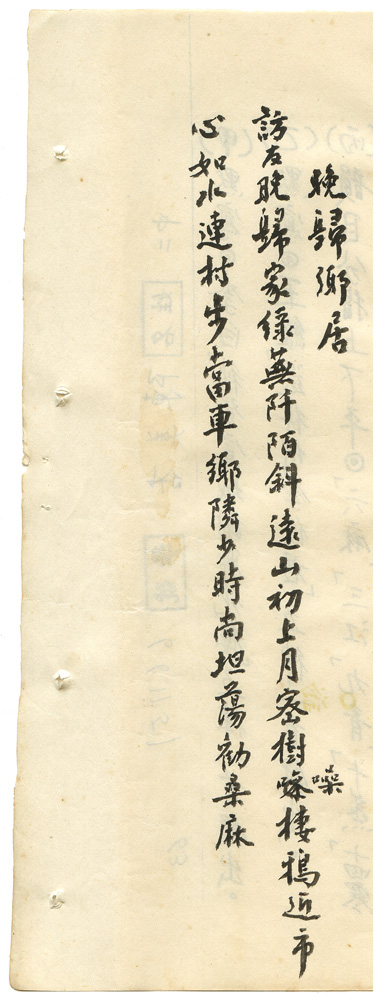 晚歸鄉居
訪友晚歸家綠蕪阡陌斜遠山初上月密樹噪棲鴉近市
心如水連村步當車鄉隣少時尚坦蕩勸桑麻